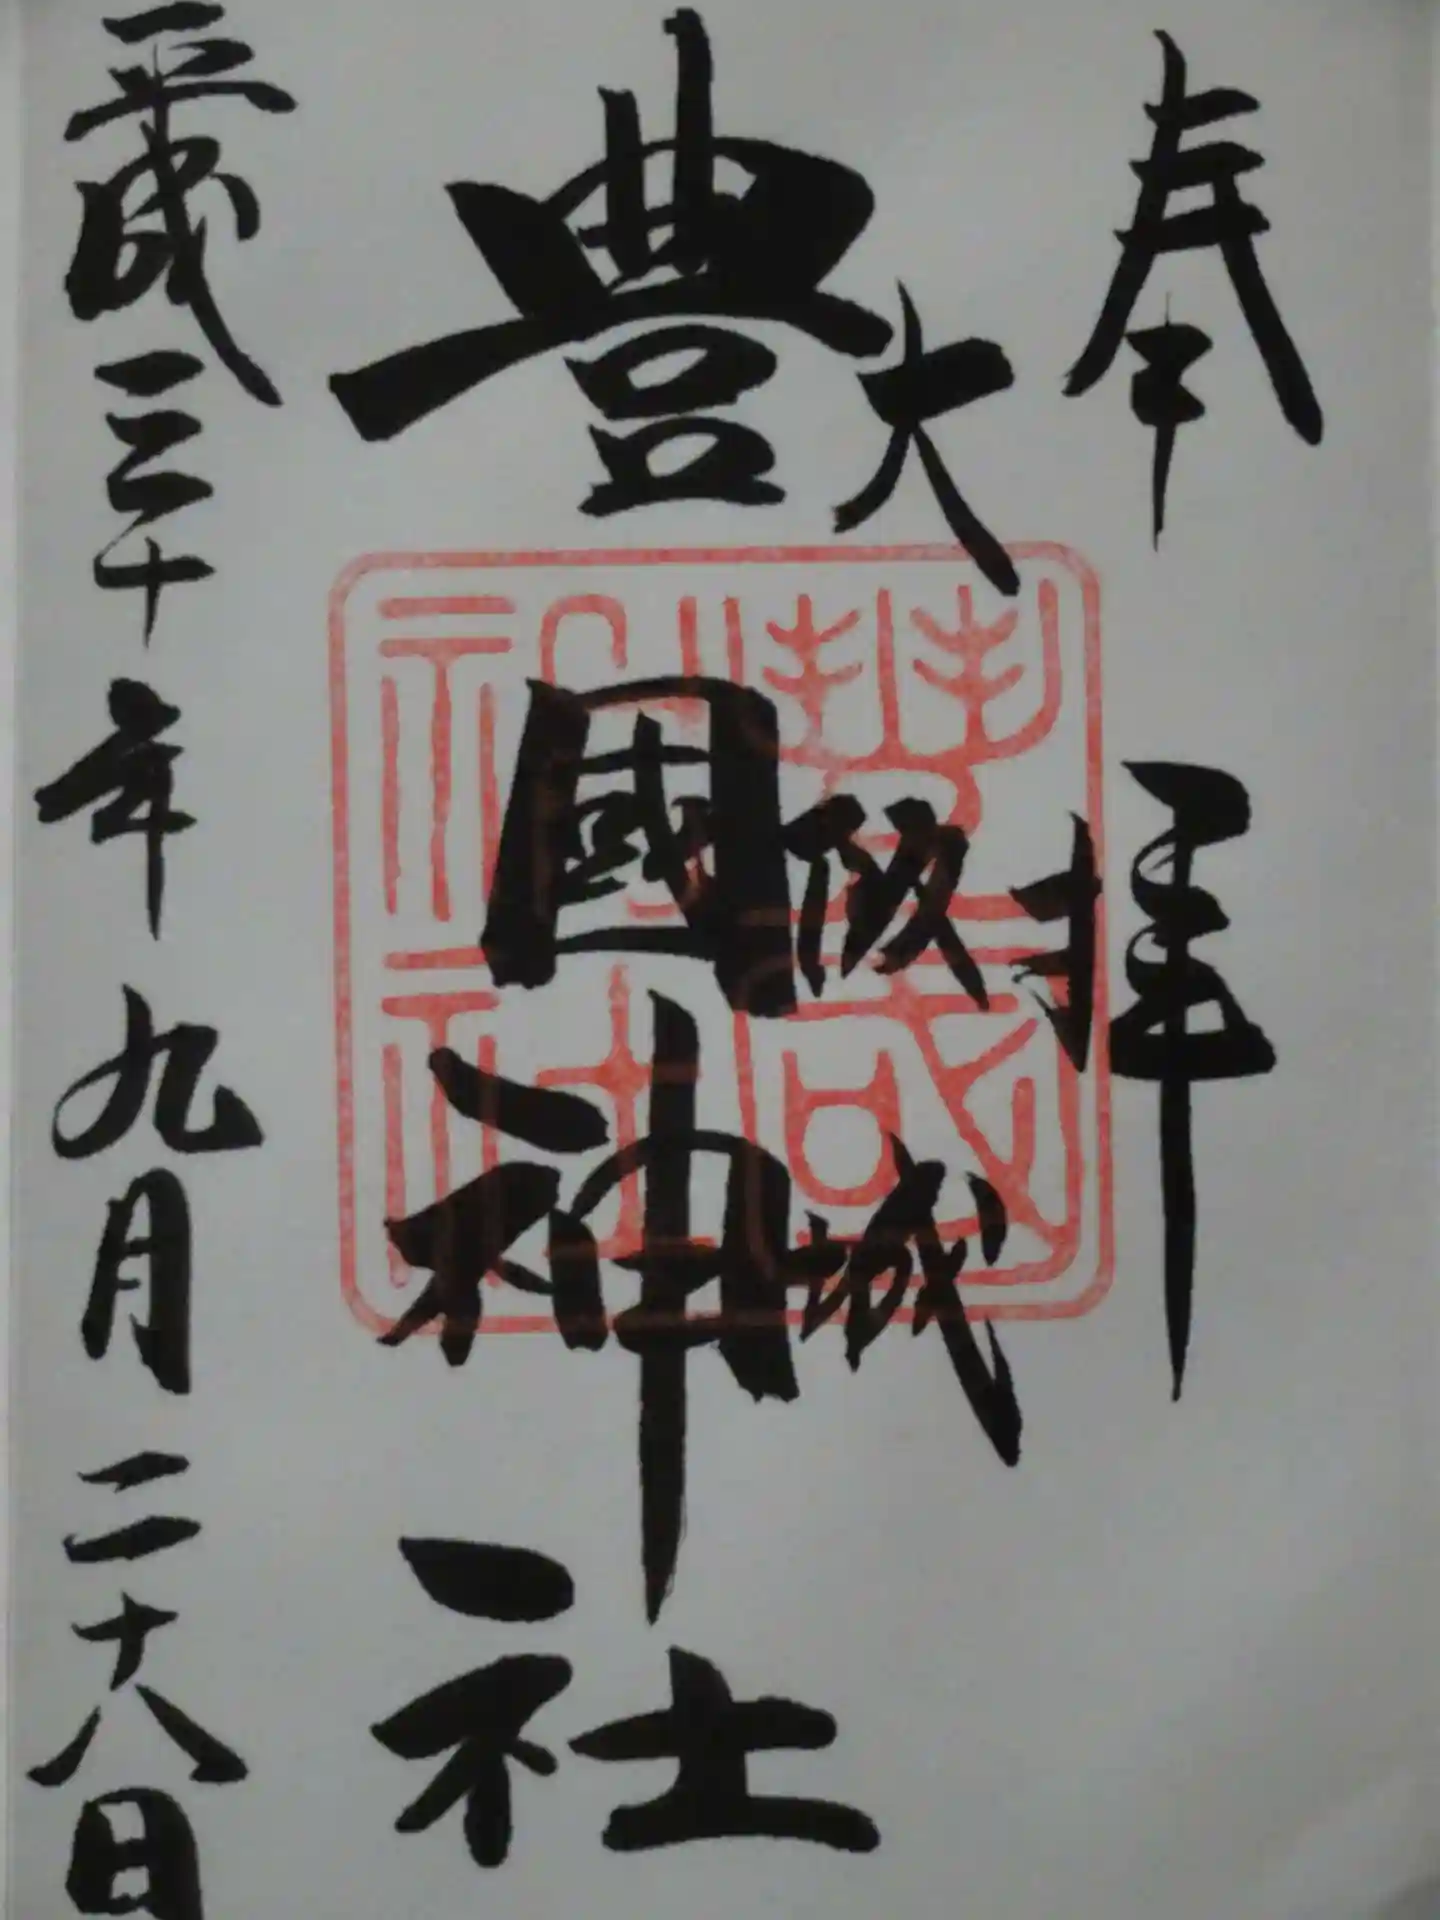 奉拝
大阪城
豊國神社
平成三十年九月二十八日
豊國神社